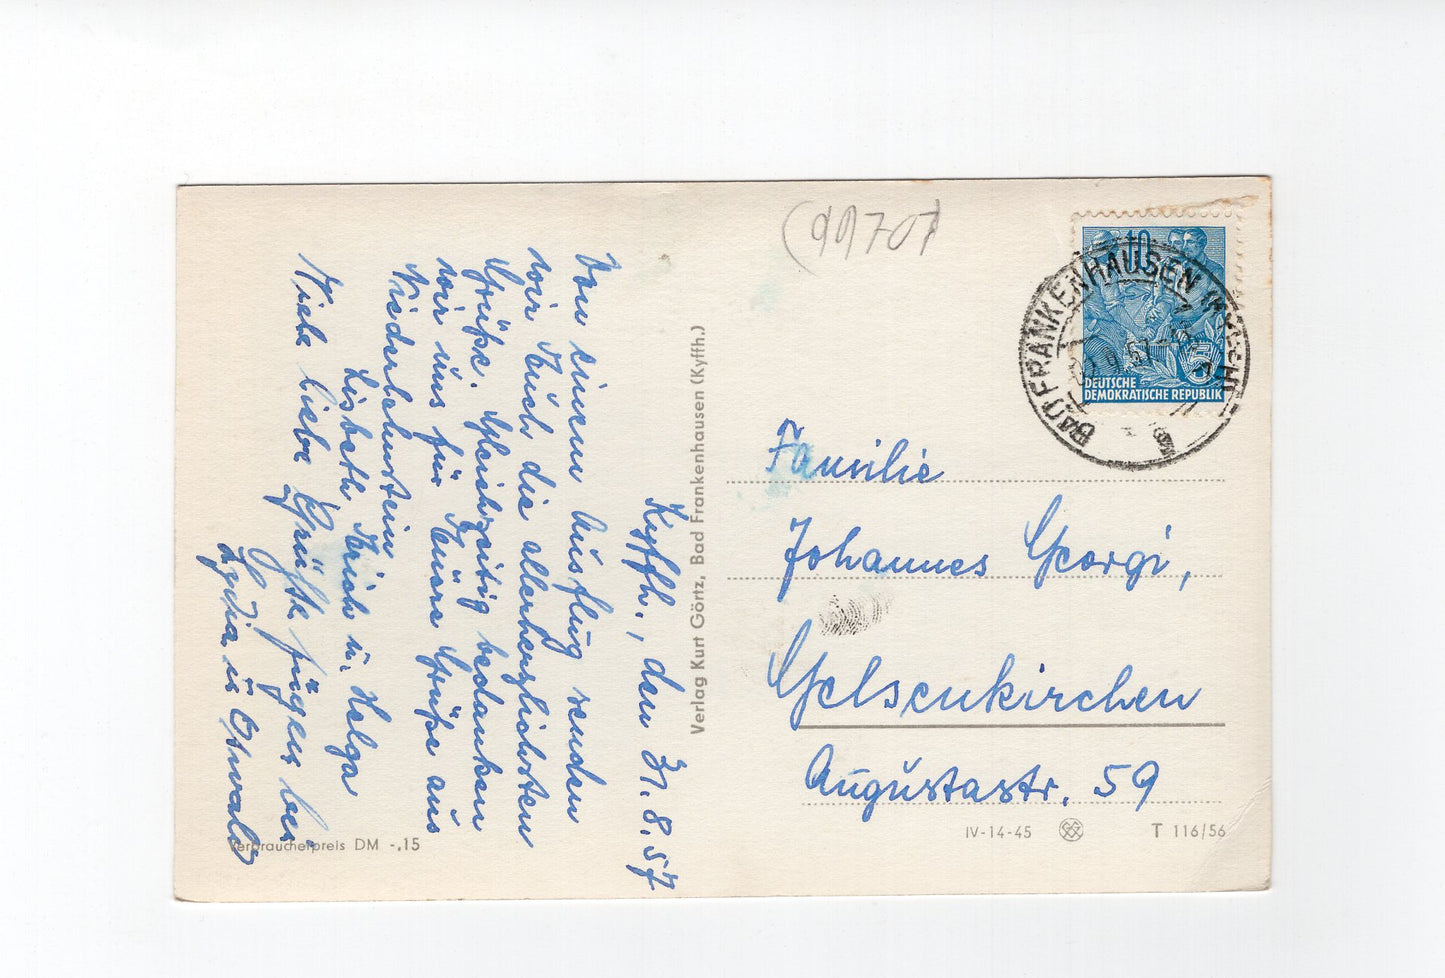 (99707)
Kyffh., den 31.8.57
Von einem Ausflug senden
wir Euch die allerherzlichsten
Grüße. Gleichzeitig bedanken
wir uns für Eure Grüße aus
Niederlehnstein
Lisbeth, Erich u. Helga
Viele liebe Grüße fügen bei
Lydia u Oswald
Verbraucherpreis DM -.15
Verlag Kurt Görtz, Bad Frankenhausen (Kyffh.)
10
5
DEUTSCHE
DEMOKRATISCHE REPUBLIK
BAD FRANKENHAUSEN
Familie
Johannes Georgi,
Gelsenkirchen
Augustastr. 59
IV-14-45
T 116/56